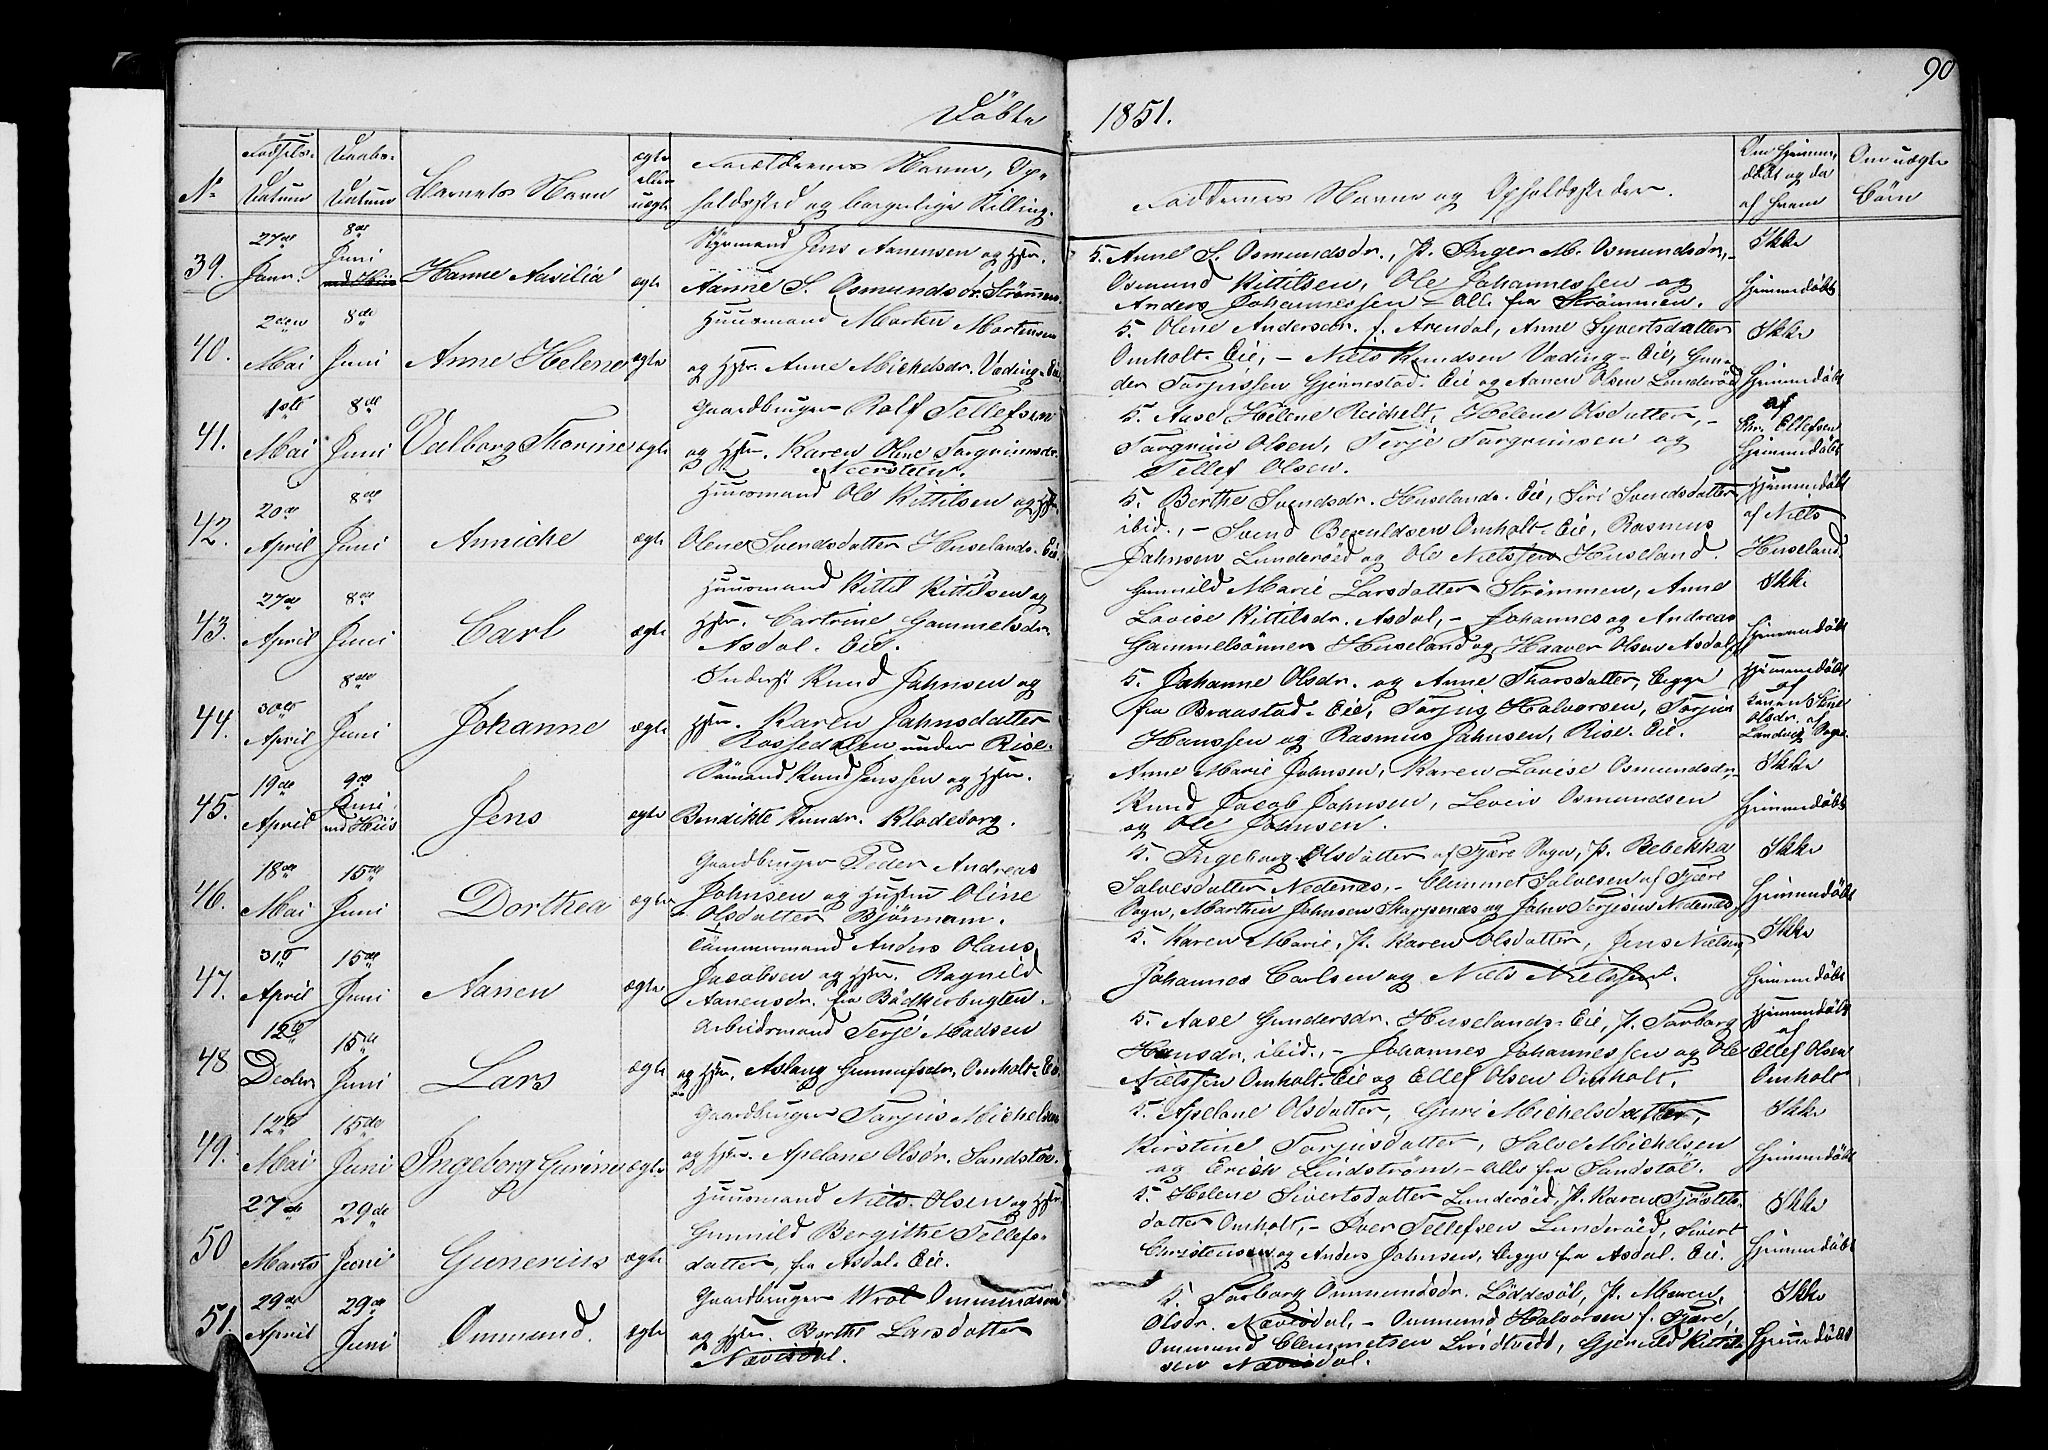 90
Döbte 1851.
No
Fødsels-
Datum
Daabs-
Datum
Barnets Navn
ægte
eller
uægte
Forældrenes Navne, Op-
holdssted og borgerlige Stilling.
Faddernes Navne og Opholdssteder.
Om hjemme-
döbt og da
af hvem
Om uægte
Börn
39. 27de Janr. 8de Juni Hanne Aasilia ægte
Styrmand Jens Aanensen og Hstr.
Aanne S. Osmundsdr. Strömmen.
5. Anne S. Osmundsdr., J. Inger M. Osmundsdr,-
Osmund Kittilsen, Ole Johannessen og
Anders Johannessen - All. fra Strömmen.
Ikke
hjemmedöbt
40. 2den Mai 8de Juni Anne Helene ægte
Huusmand Morten Mortensen
og Hstr. Anne Michelsdr. Væding-Eie
5. Olene Andersdr. f. Arendal, Anne Syvertsdatter
Omholt-Eie, - Niels Knudsen Væding-Eie, Gun-
der Torjussen Gjennestad-Eie og Aanen Olsen Lunderöd
Ikke
hjemmedöbt
41. 1ste Mai 8de Juni Valborg Thorine ægte
Gaardbruger Rolf Tellefsen
og Hstr. Karen Olene Torgrimsdr.
Neersteen.
5. Aase Helene Reichelt, Helene Olsdatter, -
Torgrim Olsen, Terje Torgrimsen og
Tellef Olsen.
af
Chr. Ellefsen
hjemmedöbt
42. 20de April 8de Juni Anniche ægte
Huusmand Ole Kittilsen og Hstr.
Olene Svendsdatter Huselands-Eie.
5. Berthe Svendsdr. Huselands-Eie, Siri Svendsdatter
ibid., - Svend Beruldsen Omholt-Eie, Rasmus
Johnsen Lunderöed og Ole Nielssen Huseland.
Hjemmedöbt
af Niels
Huseland.
43. 27de April 8de Juni Carl ægte
Huusmand Kittil Kittilsen og
Hstr. Cartrine Gammelsdr.
Asdal-Eie.
Gunild Marie Larsdatter Strömmen, Anne
Lovise Kittilsdr. Asdal, - Johannes og Andreas
Gammelsönner Huseland og Haaver Olsen Asdal
Ikke
hjemmedöbt
44. 30te April 8de Juni Johanne ægte
Inderst Knud Johnsen og
Hstr. Karen Johnsdatter
Rossedalen under Rise.
5. Johanne Olsdr. og Anne Thorsdatter, begge
fra Braastad-Eie, Torjus Halvorsen, Torjus
Hanssen og Rasmus Johnsen, Rise-Eie.
Hjemmedöbt
af
Karen Stine
Olsdr. af
Landvig Sogn
45. 19de April 9de Juni, ved Hiis Jens ægte
Sömand Knud Jenssen og Hstr.
Bendikte Knudr. Klodeborg.
Anne Marie Johnsen, Karen Lovise Osmundsdr,-
Knud Jacob Johnsen, Levin Osmundsen
og Ole Johnsen.
Ikke
hjemmedöbt
46. 18de Mai 15de Juni Dorthea ægte
Gaardbruger Peder Andreas
Johnsen og Hustru Oline
Olsdatter Bjönnam.
5. Ingeborg Olsdatter af Fjære Sogn, J. Rebekka
Salvesdatter Nedenæs, - Clemmet Salvesen af Fjære
Sogn, Marthin Johnsen Skarpenæs og John Terjesen Nedenæs.
Ikke
hjemmedöbt
47. 31te April 15de Juni Aanen ægte
Tömmermand Anders Olaus
Jacobsen og Hstr. Ragnild
Aanensdr. fra Bödkerbugten.
5. Karen Marie, J. Karen Olsdatter, Jens Nielsen,
Johannes Carlsen og Niels Nielssen.
Ikke
hjemmedöbt
48 12te Decbr 15de Juni Lars ægte
Arbeidsmand Terje Madsen
og Hstr. Aslaug Gunnufsdr. Omholt-Eie
5. Aase Gundersdr. Huselands-Eie, J. Torborg
Hansdr. ibid., - Johannes Johannessen og Ole
Nielssen Omholt-Eie og Ellef Olsen Omholt.
Hjemmedöbt
af
Ellef Olsen
Omholt.
49. 12te Mai 15de Juni Ingeborg Gurine ægte
Gaardbruger Torjus Michelsen
og Hstr. Apelane Olsdr. Sandstöe.
5. Apelane Olsdatter, Guri Michelsdatter,
Kirstine Torjusdatter, Salve Michelsen
og Erich Lindström, - Alle fra Sandstöl.
Ikke
hjemmedöbt
50 27de Marts 29de Juni Gunerius ægte
Huusmand Niels Olsen og Hstr.
Gunnild Bergithe Tellefs-
datter, fra Asdal-Eie.
5. Helene Sivertsdatter Lunderöed, J. Karen Tjöstels-
datter Omholt, - Iver Tellefsen Lunderöed, Sivert
Christensen og Anders Johnsen, begge fra Asdal-Eie.
Ikke
hjemmedöbt
51. 29de April 29de Juni Ommund. ægte
Gaardbruger Wrol Ommundsen
og Hstr. Berthe Larsdatter
Nævisdal.
5. Torborg Ommundsdr. Löddesöl, J. Maren
Olsdr. Nævisdal, - Ommund Halvorsen f. Fjære,
Ommund Clemmetsen Lindtvedt, Gjeruld Kittil-
sen Nævisdal.
Ikke
hjemmedöbt